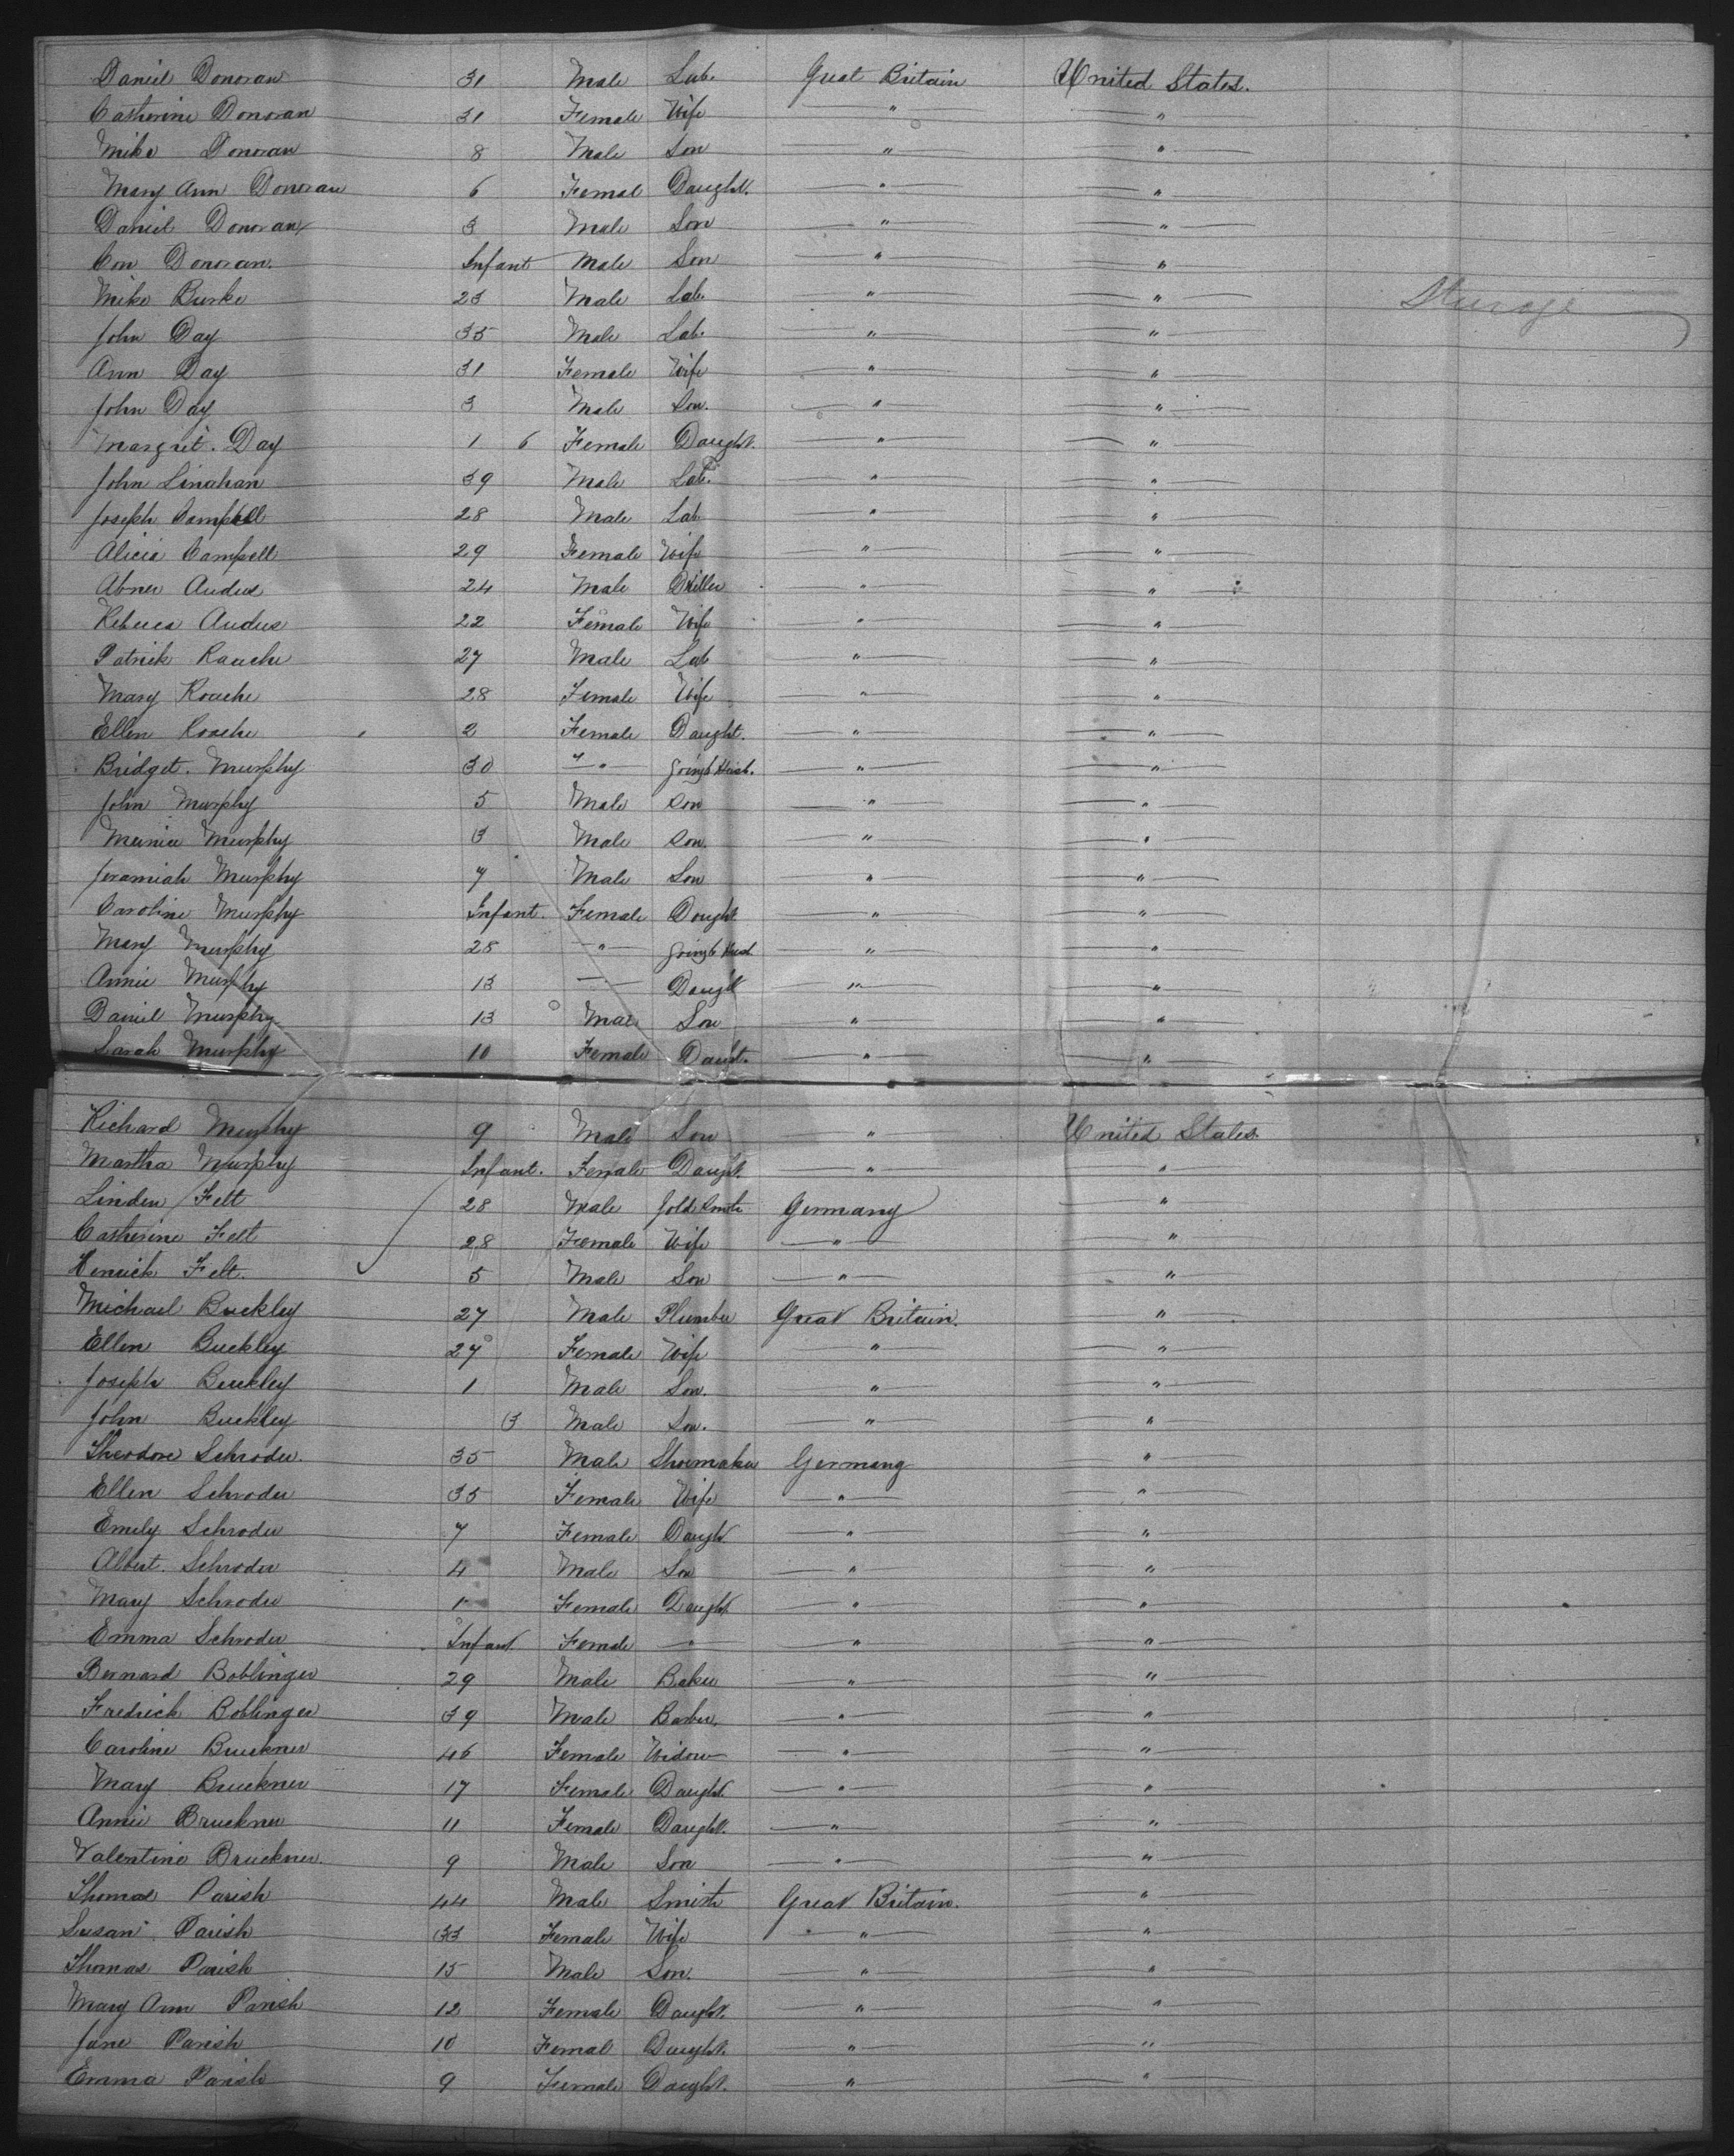 Daniel Donovan 31 Male Lab. Great Britain United States.
Catherine Donovan 31 Female Wife " "
Mike Donovan 8 Male Son " "
Mary Ann Donovan 6 Femal Daught. " "
Daniel Donovan 3 Male Son " "
Con Donovan. Infant Male Son " "
Mike Burke 23 Male Lab. " " Steerage
John Day 35 Male Lab. " "
Ann Day 31 Female Wife " "
John Day 3 Male Son. " "
Margret. Day 1 6 Female Daught. " "
John Linahan 39 Male Lab. " "
Joseph Campbell 28 Male Lab " "
Alicia Campell 29 Female Wife " "
Abner Audus 24 Male " "
Rebecca Audus 22 Female Wife " "
Patrick Roache 27 Male Lab " "
Mary Roache 28 Female Wife " "
Ellen Roache 2 Female Daught. " "
Bridget. Murphy 30 " going to Husb. " "
John Murphy 5 Male Son " "
Murphy 3 Male Son. " "
Jeramiah Murphy 7 Male Son " "
Caroline Murphy Infant. Female Daught " "
Mary Murphy 28 " going to Husd " "
Annie Murphy 13 Daught " "
Daniel Murphy 13 Male Son " "
Sarah Murphy 10 Female Daught. " "
Richard Murphy 9 Male Son " United States.
Martha Murphy Infant. Female Daught. " "
Linden Felt 28 Male Gold Smith Germany "
Catherine Felt 28 Female Wife " "
Henrick Felt. 5 Male Son " "
Michael Buckley 27 Male Plumber Great Britain. "
Ellen Buckley 27 Female Wife " "
Joseph Buckley 1 Male Son. " "
John Buckley 3 Male Son. " "
Theodore Schroder. 35 Male Shoemaker Germany "
Ellen Schroder 35 Female Wife " "
Emily Schroder 7 Female Daught " "
Albert. Schroder 4 Male Son " "
Mary Schroder 1 Female Daught " "
Emma Schroder Infant Female " " "
Bernard Boblinger 29 Male Baker " "
Fredrick Boblinger 39 Male Barber. " "
Caroline Bruckner 46 Female Widow " "
Mary Bruckner 17 Female Daught " "
Annie Bruckner 11 Female Daught. " "
Valentine Bruckner. 9 Male Son " "
Thomas Parish 44 Male Smith Great Britain. "
Susan Parish 33 Female Wife " "
Thomas Parish 15 Male Son. " "
Mary Ann Parish 12 Female Daught. " "
Jane Parish 10 Femal Daught. " "
Emma Parish 9 Female Daught. " "